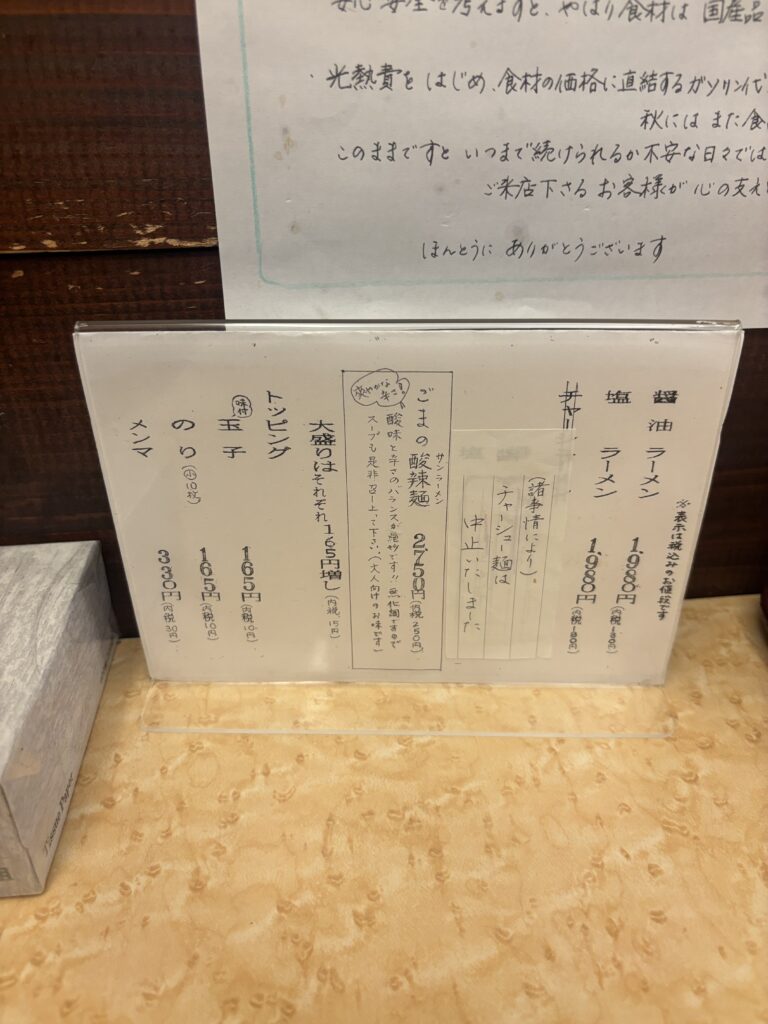 安心 安全を考えますと、やはり食材は 国産品
光熱費を はじめ、食材の価格に直結するガソリン代
秋には また食
このままですと いつまで続けられるか不安な日々では
ご来店下さる お客様が 心の支え
ほんとうに ありがとうございます
※表示は税込みのお値段です
醤油 ラーメン 1,980円(内税180円)
塩 ラーメン 1,980円(内税180円)
チャー
(諸事情により)
チャーシュー麺は
中止いたしました
サンラーメン
ごまの酸辣麺 2750円(内税250円)
爽やかな
酸味と辛さのバランスが絶妙です!! 無化調ですので
スープも是非召し上って下さい。(大人向けのお味です)
大盛りはそれぞれ165円増し(内税15円)
トッピング
味付
玉子 165円(内税10円)
のり(小10枚) 165円(内税10円)
メンマ 330円(内税30円)
Tissue Paper